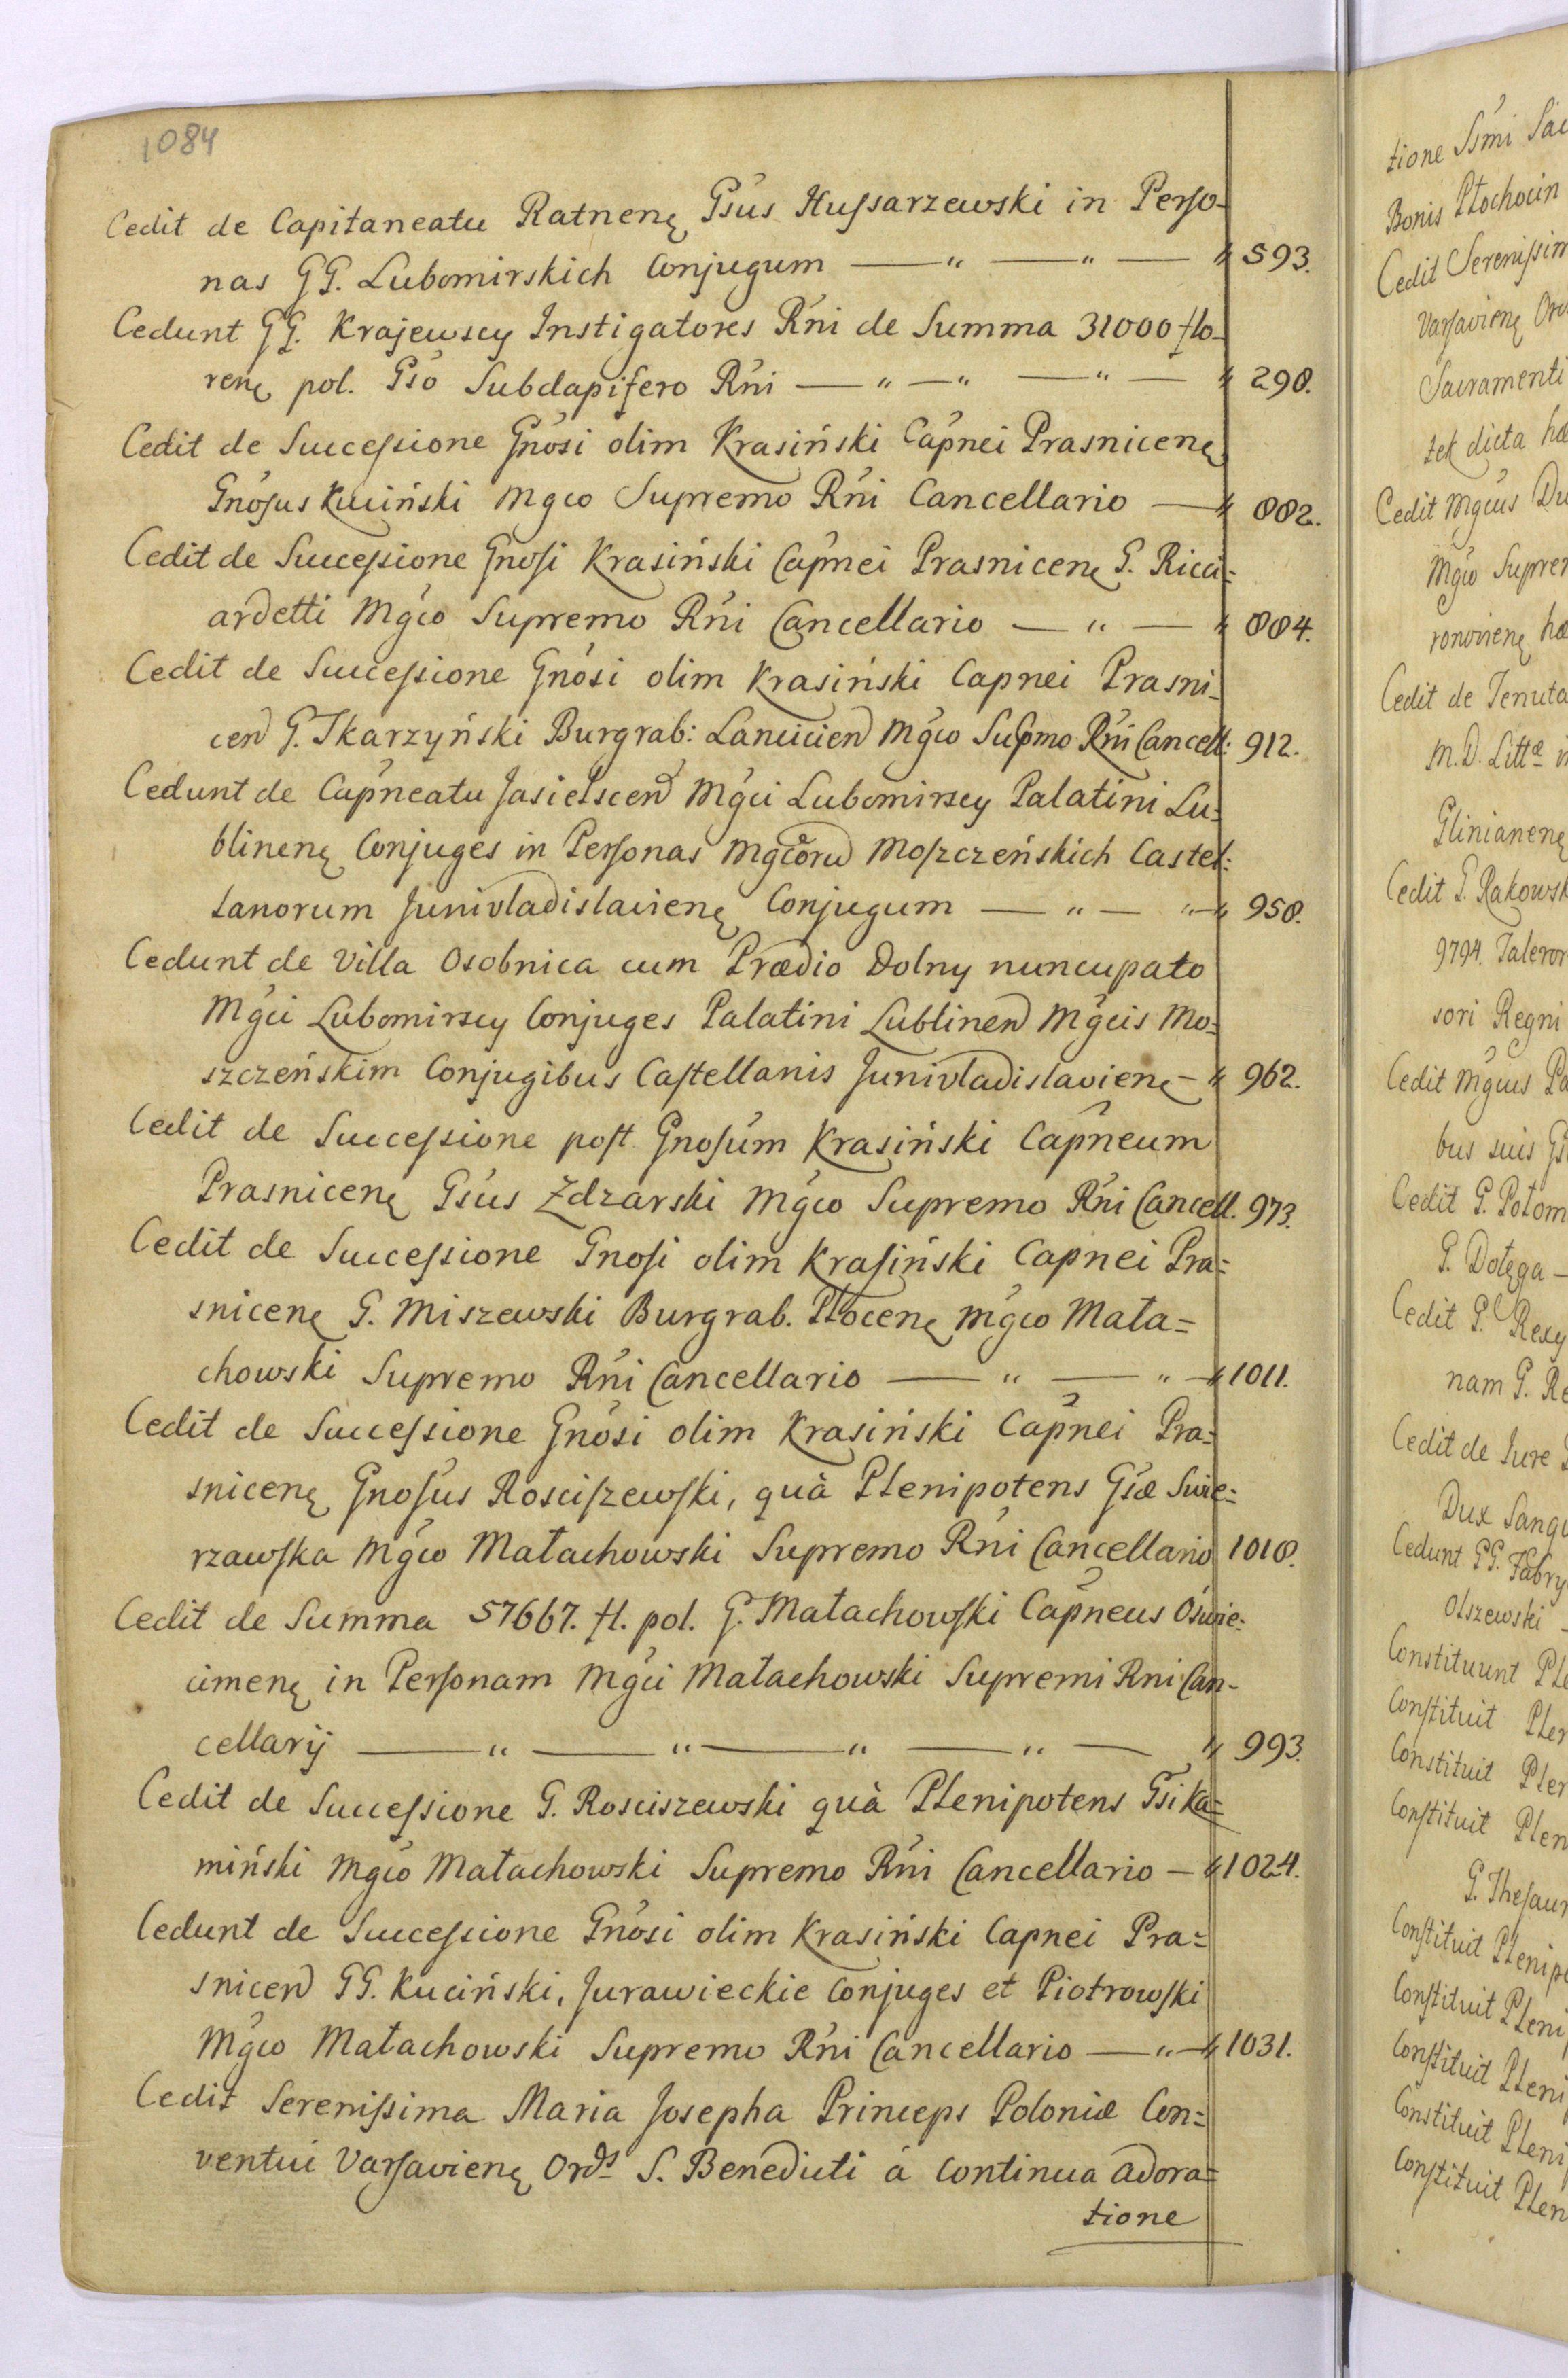 1084
Cedit de Capitaneatu Ratnenę Gsus Hussarzewski in Perso-
nas GG. Lubomirskich Conjugum — " — " — " 593.
Cedunt GG. Krajewscy Instigatores Rni de Summa 31000 flo-
renę pol. Gso Subdapifero Rni — " — " — " — " 298.
Cedit de Successione Gnosi olim Krasiński Capnei Prasnicenę
Gnosus Kuciński Mgco Supremo Rni Cancellario — " 882.
Cedit de Successione Gnosi Krasiński Capnei Prasnicenę G. Ricci=
ardetti Mgco Supremo Rni Cancellario — " — " 884.
Cedit de Successione Gnosi olim Krasiński Capnei Prasni-
cen G. Skarzyński Burgrab: Lancicien Mgco Supmo Rni Cancell: 912.
Cedunt de Capneatu Jasielscen Mgci Lubomirscy Palatini Lu=
blinenę Conjuges in Personas Mgcoru Moszczeńskich Castel=
lanorum Junivladislavienę Conjugum — " — " — " 958.
Cedunt de Villa Osobnica cum Prædio Dolny nuncupato
Mgci Lubomirscy Conjuges Palatini Lublinen Mgcis Mo=
szczeńskim Conjugibus Castellanis Junivladislavienę — " 962.
Cedit de Successione post Gnosum Krasiński Capneum
Prasnicenę Gsus Zdzarski Mgco Supremo Rni Cancell. 973.
Cedit de Successione Gnosi olim Krasiński Capnei Pra=
snicenę G. Miszewski Burgrab. Płocenę Mgco Mała=
chowski Supremo Rni Cancellario — " — " — " 1011.
Cedit de Successione Gnosi olim Krasiński Capnei Pra=
snicenę Gnosus Rosciszewski, quà Plenipotens Gsæ Swie=
rzawska Mgco Małachowski Supremo Rni Cancellario 1018.
Cedit de Summa 57667. fl. pol. G. Małachowski Capneus Oświe=
cimenę in Personam Mgci Małachowski Supremi Rni Can-
cellarij — " — " — " — " — " 993.
Cedit de Successione G. Rosciszewski quà Plenipotens Gsi Ka=
miński Mgco Małachowski Supremo Rni Cancellario — " 1024.
Cedunt de Successione Gnosi olim Krasiński Capnei Pra=
snicen GG. Kuciński, Jurawieckie Conjuges et Piotrowski
Mgco Małachowski Supremo Rni Cancellario — " — " 1031.
Cedit Serenissima Maria Josepha Princeps Poloniæ Con=
ventui Varsavienę Ords S. Benedicti à Continua Adora=
tione
tione Ssmi Sac
Bonis Płochocin
Cedit Serenissim
Varsavienę Or
Sacramenti
tek dicta hæ
Cedit Mgcus Du
Mgco Suprem
ronovienę hæ
Cedit de Tenuta
M. D. Littæ in
Glinianenę
Cedit G. Rakowsk
9794. Taleror
sori Regni
Cedit Mgcus Po
bus suis Gs
Cedit G. Potom
G. Dołęga —
Cedit G. Rexy
nam G. Re
Cedit de Jure
Dux Sangu
Cedunt GG. Fabry
Olszewski —
Constituunt Ple
Constituit Plen
Constituit Plen
Constituit Plen
G. Thesaur
Constituit Plenipo
Constituit Pleni
Constituit Pleni
Constituit Pleni
Constituit Plen